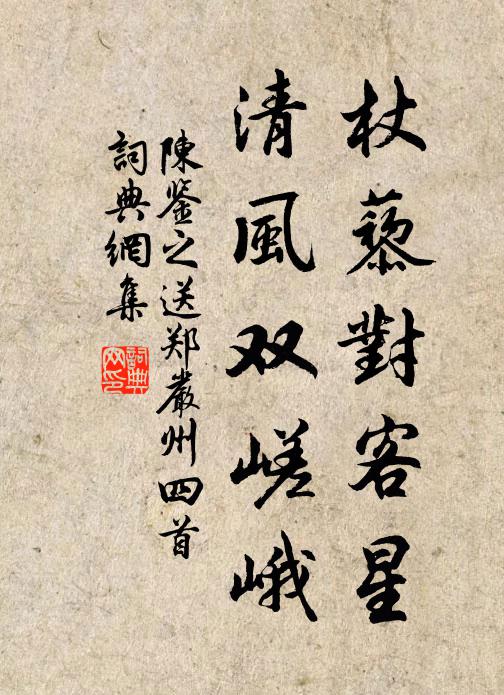 杖藜對客星
清風双嵯峨
陳鉴之送郑嚴州四首
詞典網集
詞典
网印